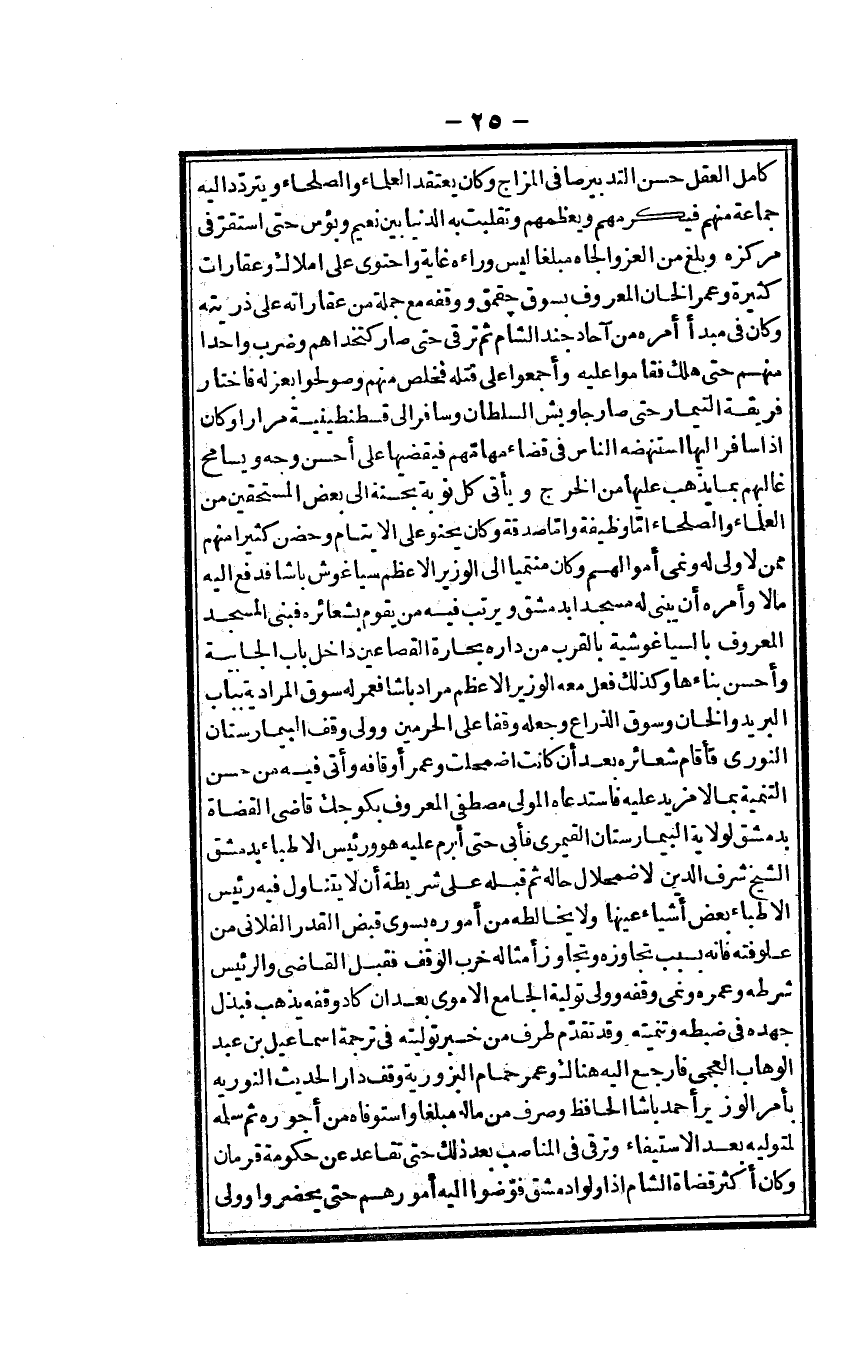 – ٢٥ –
كامل العقل حسن التدبير صافى المزاج وكان يعتقد العلماء والصلحاء ويتردّد اليه
جماعة منهم فيكرمهم ويعظمهم وتقلبت به الدنيا بين نعيم وبؤس حتى استقرّ فى
مركزه وبلغ من العز والجاه مبلغا ليس وراءه غاية واحتوى على املاك وعقارات
كثيرة وعمر الخان المعروف بسوق جقمق ووقفه مع جملة من عقاراته على ذريته
وكان فى مبدأ أمره من آحاد جند الشام ثم ترقى حتى صار كتخداهم وضرب واحدا
منهم حتى هلك فقاموا عليه وأجمعوا على قتله فخلص منهم وصولحوا بعزله فاختار
فريقة التيمار حتى صار جاويش السلطان وسافر الى قسطنطينية مرارا وكان
اذا سافر اليها استنهضه الناس فى قضاء مهامّهم فيقضيها على أحسن وجه ويسامح
غالبهم بما يذهب عليها من الخرج و يأتى كل نوبة بحسنة الى بعض المستحقين من
العلماء والصلحاء امّا وظيفة وامّا صدقة وكان يحنو على الايتام وحضن كثيرا منهم
ممن لا ولى له ونمى أموالهم وكان منتميا الى الوزير الاعظم سياغوش باشا فدفع اليه
مالا وأمره أن يبنى له مسجدا بدمشق ويرتب فيه من يقوم بشعائره فبنى المسجد
المعروف بالسياغوشية بالقرب من داره بحارة القصاعين داخل باب الجابية
وأحسن بناءها وكذلك فعل معه الوزير الاعظم مراد باشا فعمر له سوق المرادية بباب
البريد والخان وسوق الذراع وجعله وقفا على الحرمين وولى وقف البيمارستان
النورى فأقام شعائره بعد أن كانت اضمحلت وعمر أوقافه وأتى فيه من حسن
التنمية بما لا مزيد عليه فاستدعاه المولى مصطفى المعروف بكوجك قاضى القضاة
بدمشق لولاية البيمارستان القيمرى فأبى حتى أبرم عليه هو ورئيس الاطباء بدمشق
الشيخ شرف الدين لاضمحلال حاله ثم قبله على شريطة أن لا يتناول فيه رئيس
الاطباء بعض أشياء عينها ولا يخالطه من أموره بسوى قبض القدر الفلانى من
علوفته فانه بسبب تجاوزه وتجاوز أمثاله خرب الوقف فقبل القاضى والرئيس
شرطه وعمره ونمى وقفه وولى تولية الجامع الاموى بعد ان كاد وقفه يذهب فبذل
جهده فى ضبطه وتنميته وقد تقدّم طرف من خبر توليته فى ترجمة اسماعيل بن عبد
الوهاب العجمى فارجع اليه هنالك وعمر حمام البزورية وقف دار الحديث النوريه
بأمر الوزير أحمد باشا الحافظ وصرف من ماله مبلغا واستوفاه من أجوره ثم سلمه
لمتوليه بعد الاستيفاء وترقى فى المناصب بعد ذلك حتى تقاعد عن حكومة قرمان
وكان أكثر قضاة الشام اذا ولوا دمشق فوّضوا اليه أمورهم حتى يحضروا وولى